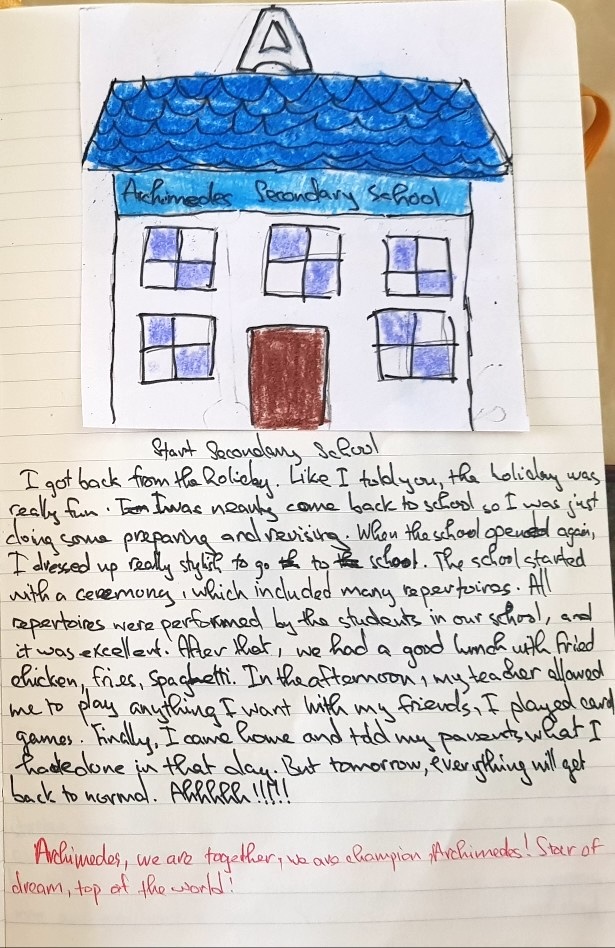 A
Archimedes Secondary School
Start Secondary School
I got back from the Holiday. Like I told you, the holiday was
really fun. I was nearly come back to school so I was just
doing some preparing and revising. When the school opened again,
I dressed up really stylish to go to school. The school started
with a ceremony, which included many repertoires. All
repertoires were performed by the students in our school, and
it was excellent. After that, we had a good lunch with fried
chicken, fries, spaghetti. In the afternoon, my teacher allowed
me to play anything I want with my friends, I played card
games. Finally, I came home and told my parents what I
had done in that day. But tomorrow, everything will get
back to normal. Ahhhhh!!!!!
Archimedes, we are together, we are champion, Archimedes! Star of
dream, top of the world!